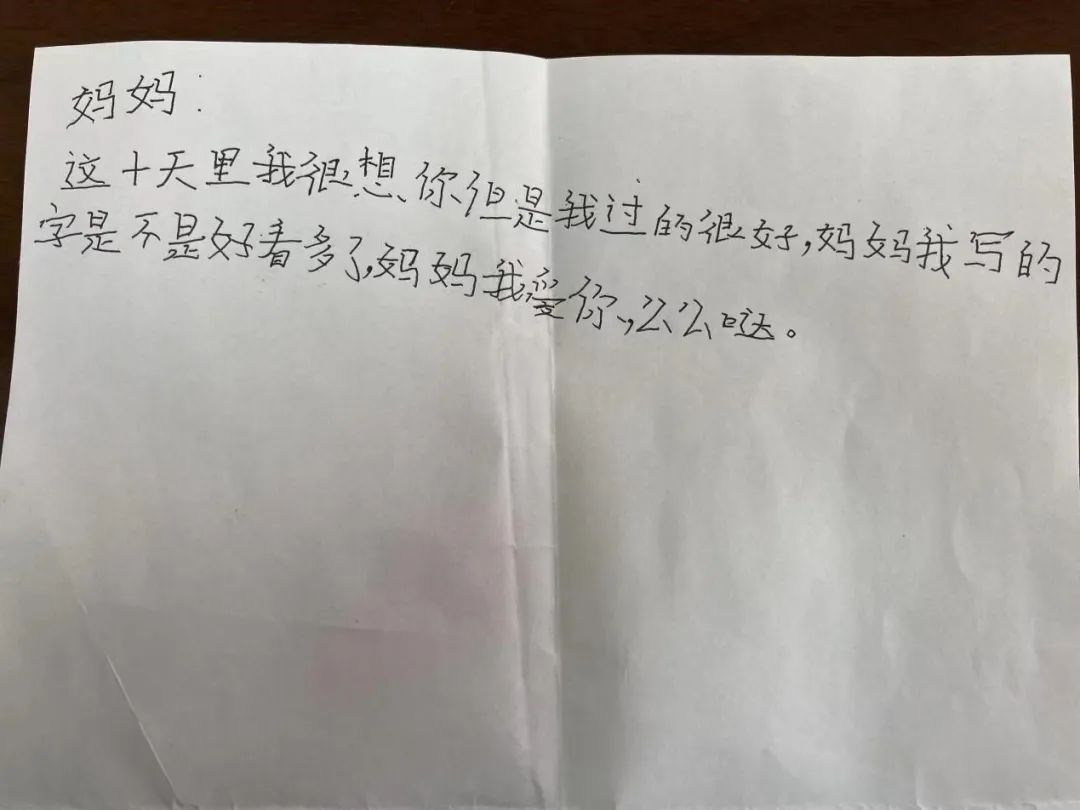 妈妈:
这十天里我很想你但是我过的很好,妈妈我写的
字是不是好看多了,妈妈我爱你,么么哒。